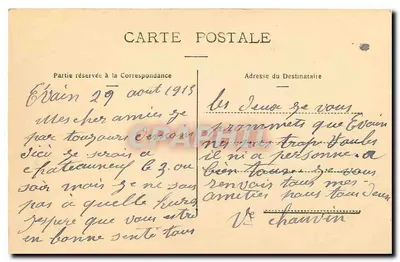 CARTE POSTALE
Partie réservée à la Correspondance
Adresse du Destinataire
Evain 29 aout 1913
Mes cher amies je
par toujours
d'ici je serais a
chateauneuf le 3 au
soir mais je ne sais
pas a quelle heure
j'espere que vous etes
en bonne senté tous
les deux je vous
prommets que Evain
nes pas trop
il ni a personne a
bien tous je vous
renvois tous mes
amitiés pour tous deux
Ve chauvin
CPAPHIL